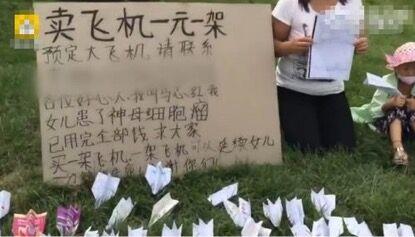 卖飞机一元一架
预定大飞机,请联系
各位好心人,我叫马心红我
女儿患了神母细胞瘤
已用完全部钱,求大家
买一架飞机,一架飞机可以延续女儿
谢你们